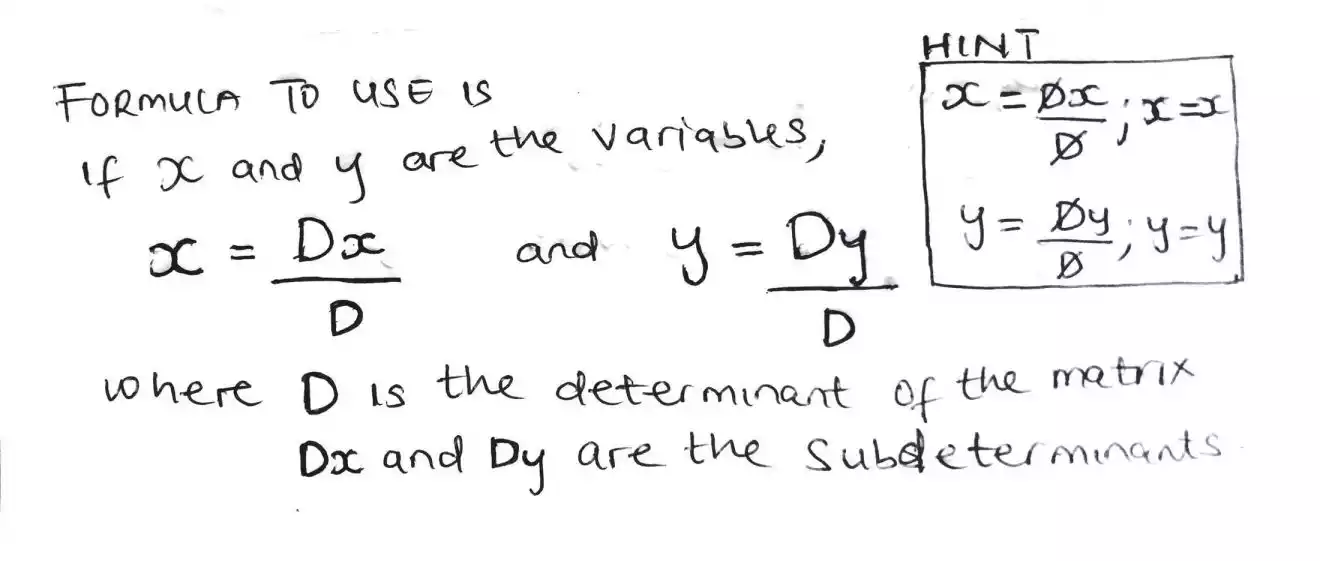 FORMULA TO USE IS
If x and y are the variables,
x = Dx/D and y = Dy/D
where D is the determinant of the matrix
Dx and Dy are the subdeterminants
HINT
x = Dx/D ; x=x
y = Dy/D ; y=y